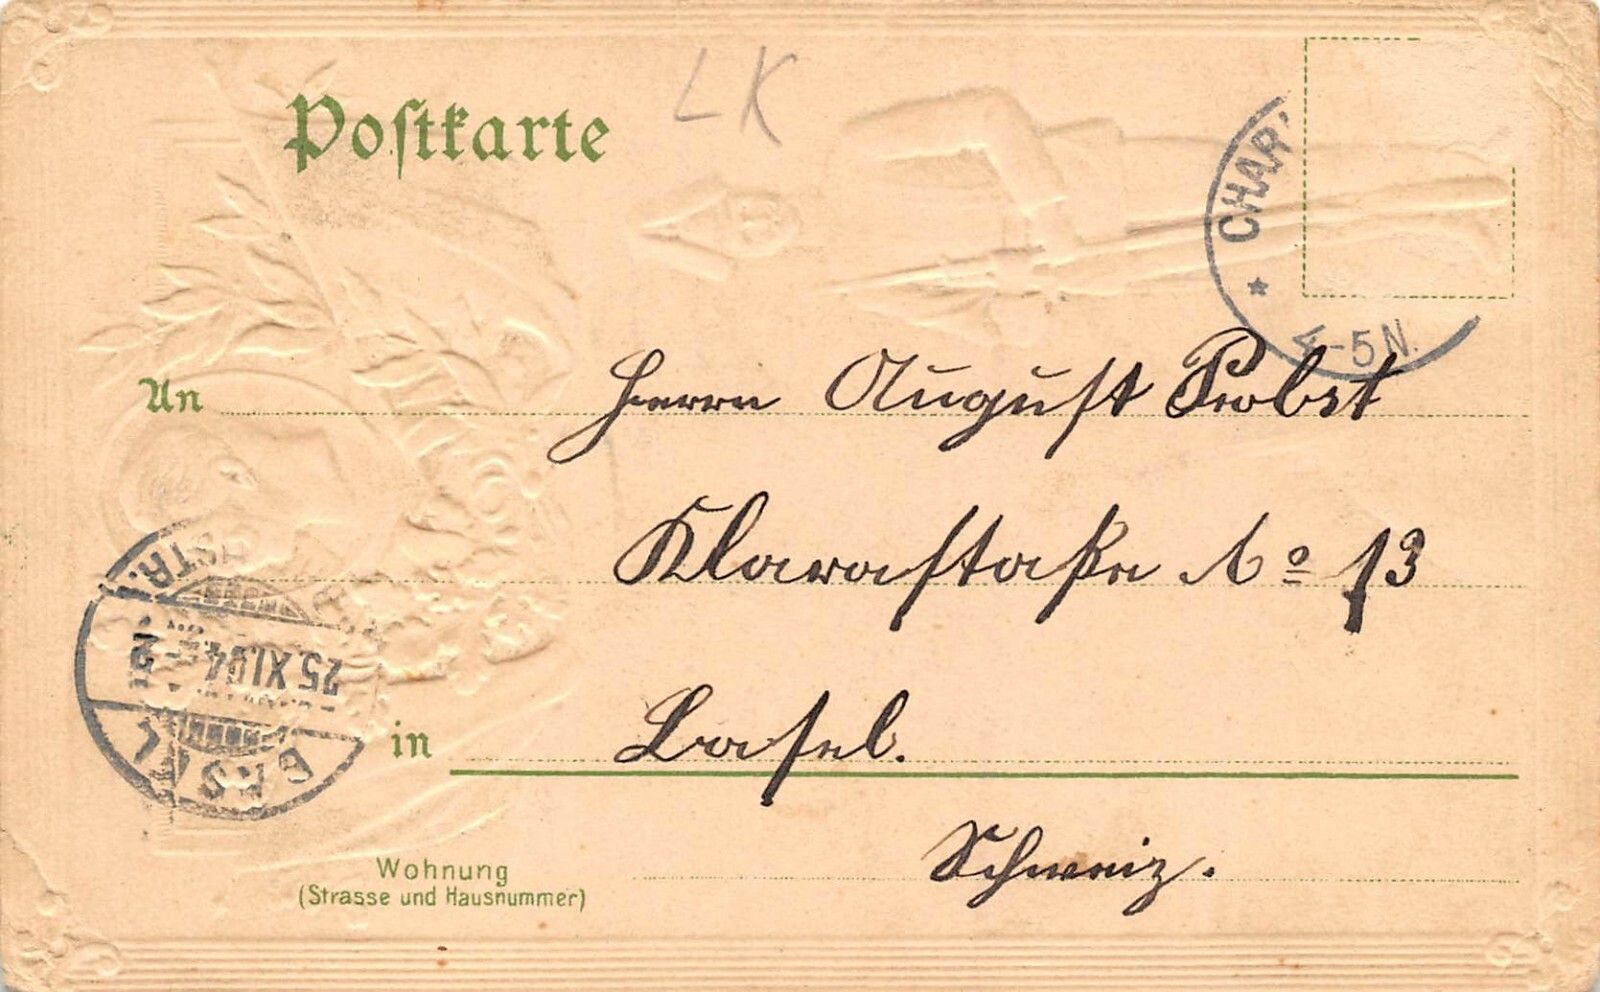 Postkarte
LK
CHAR
4-5N.
An Herrn August Probst
Klarastraße No 13
in Basel.
Schweiz.
Wohnung
(Strasse und Hausnummer)
BASEL
25.XI.04
STR.